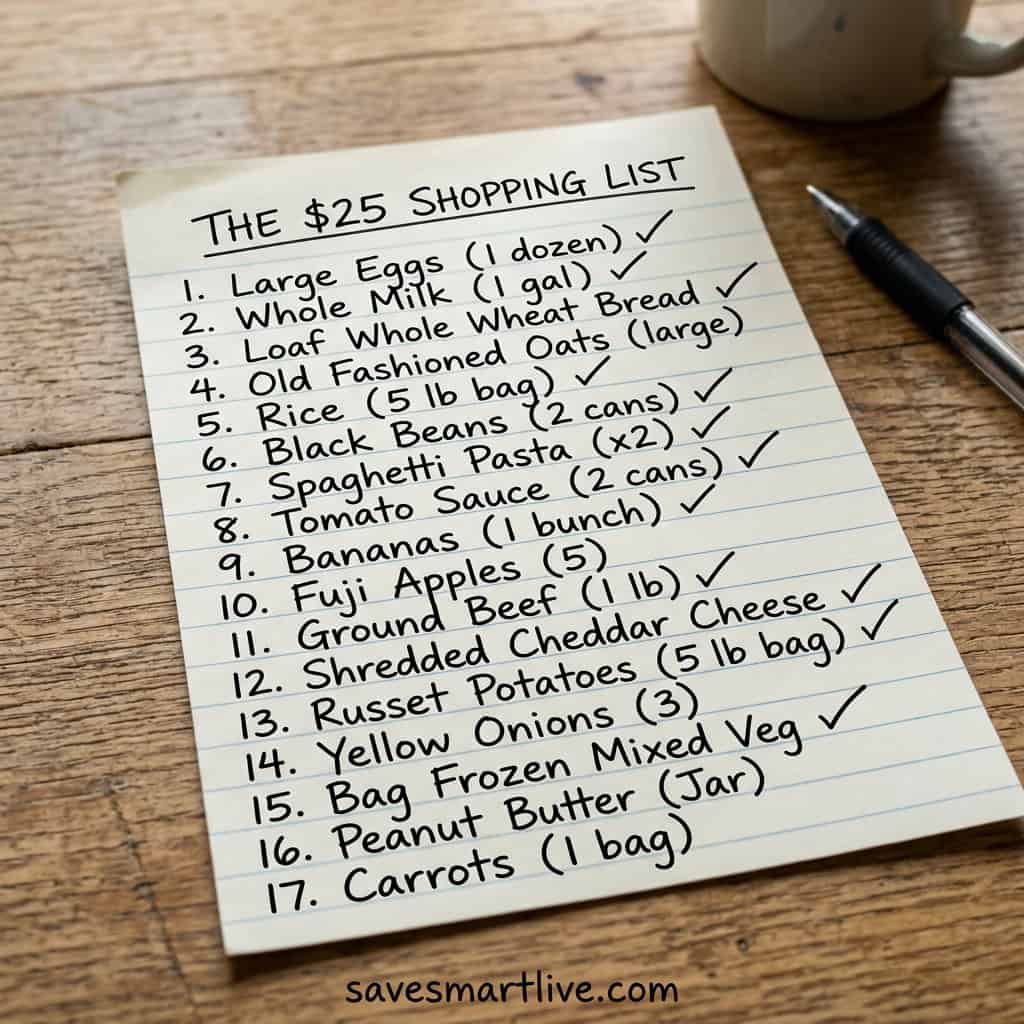 THE $25 SHOPPING LIST
1. Large Eggs (1 dozen) ✓
2. Whole Milk (1 gal) ✓
3. Loaf Whole Wheat Bread ✓
4. Old Fashioned Oats (large)
5. Rice (5 lb bag) ✓
6. Black Beans (2 cans) ✓
7. Spaghetti Pasta (x2) ✓
8. Tomato Sauce (2 cans) ✓
9. Bananas (1 bunch) ✓
10. Fuji Apples (5)
11. Ground Beef (1 lb) ✓
12. Shredded Cheddar Cheese ✓
13. Russet Potatoes (5 lb bag) ✓
14. Yellow Onions (3)
15. Bag Frozen Mixed Veg ✓
16. Peanut Butter (Jar)
17. Carrots (1 bag)
savesmartlive.com